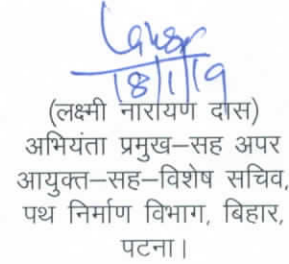 18/1/19
(लक्ष्मी नारायण दास)
अभियंता प्रमुख–सह अपर
आयुक्त–सह–विशेष सचिव,
पथ निर्माण विभाग, बिहार,
पटना।